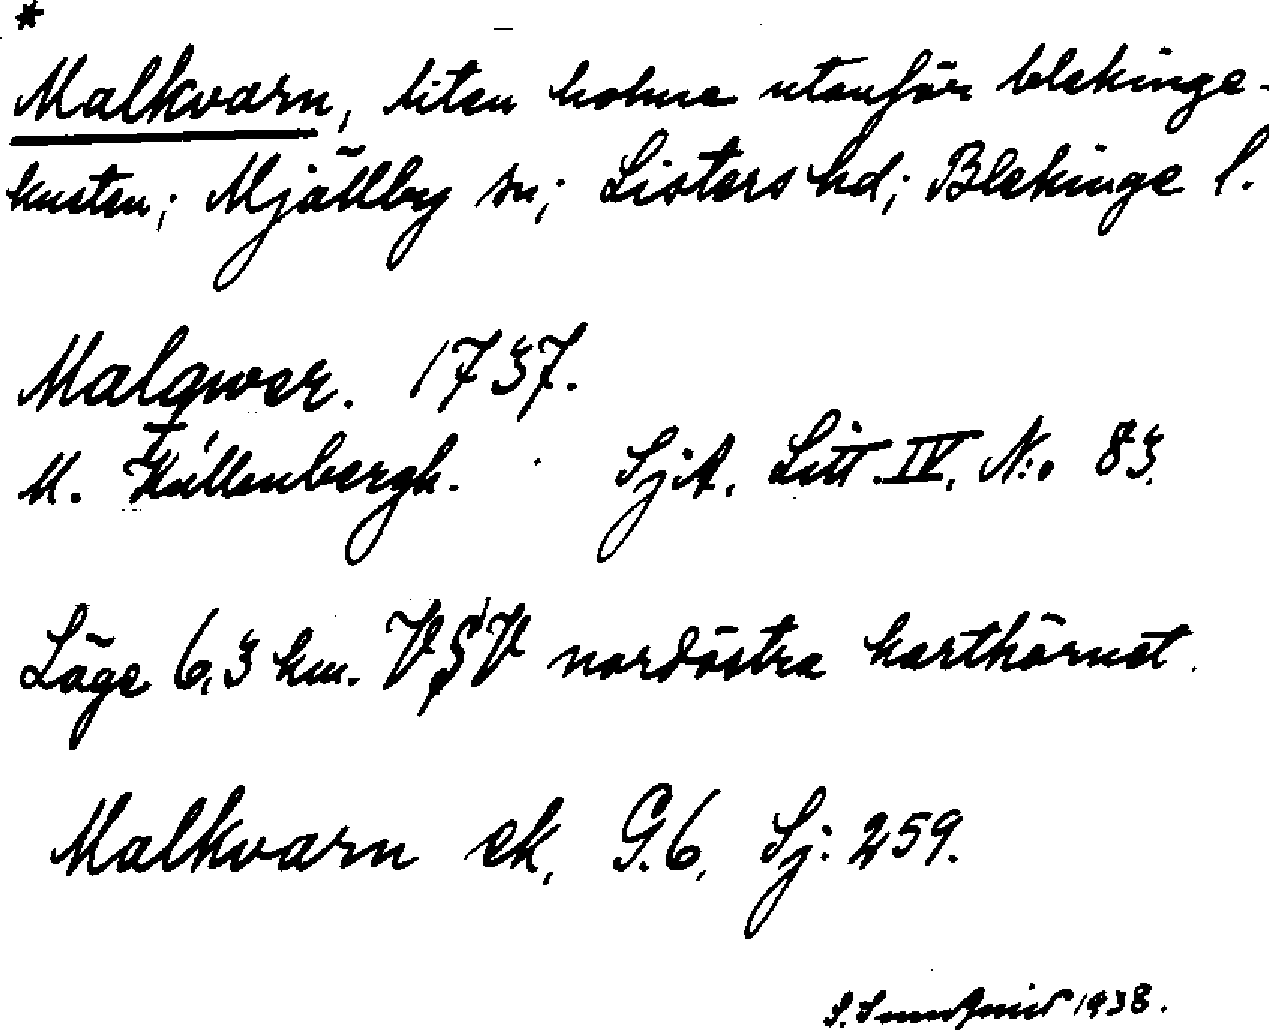 *
Malkvarn, liten holme utanför blekinge-
kusten; Mjällby sn; Listers hd; Blekinge l.
Malqwer. 1737.
N. Källenbergh. SjA. Litt. IV. N:o 83.
Läge 6,3 km. VSV nordöstra karthörnet.
Malkvarn ek. G.6. Sj: 259.
S. 1938.